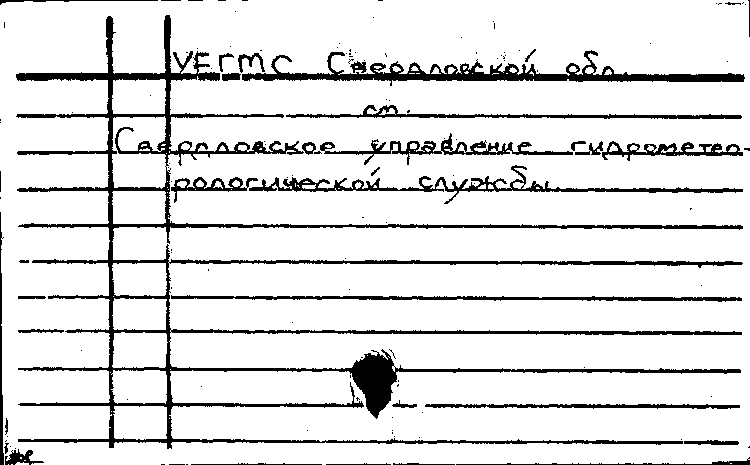 УЕГМС Свердловской обл.
см.
Свердловское управление гидрометео-
рологической службы.